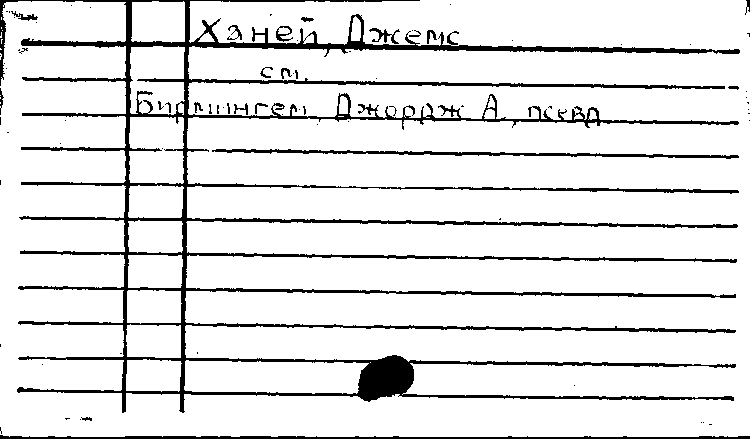 Ханей, Джемс
см.
Бирмингем, Джордж А., псевд.